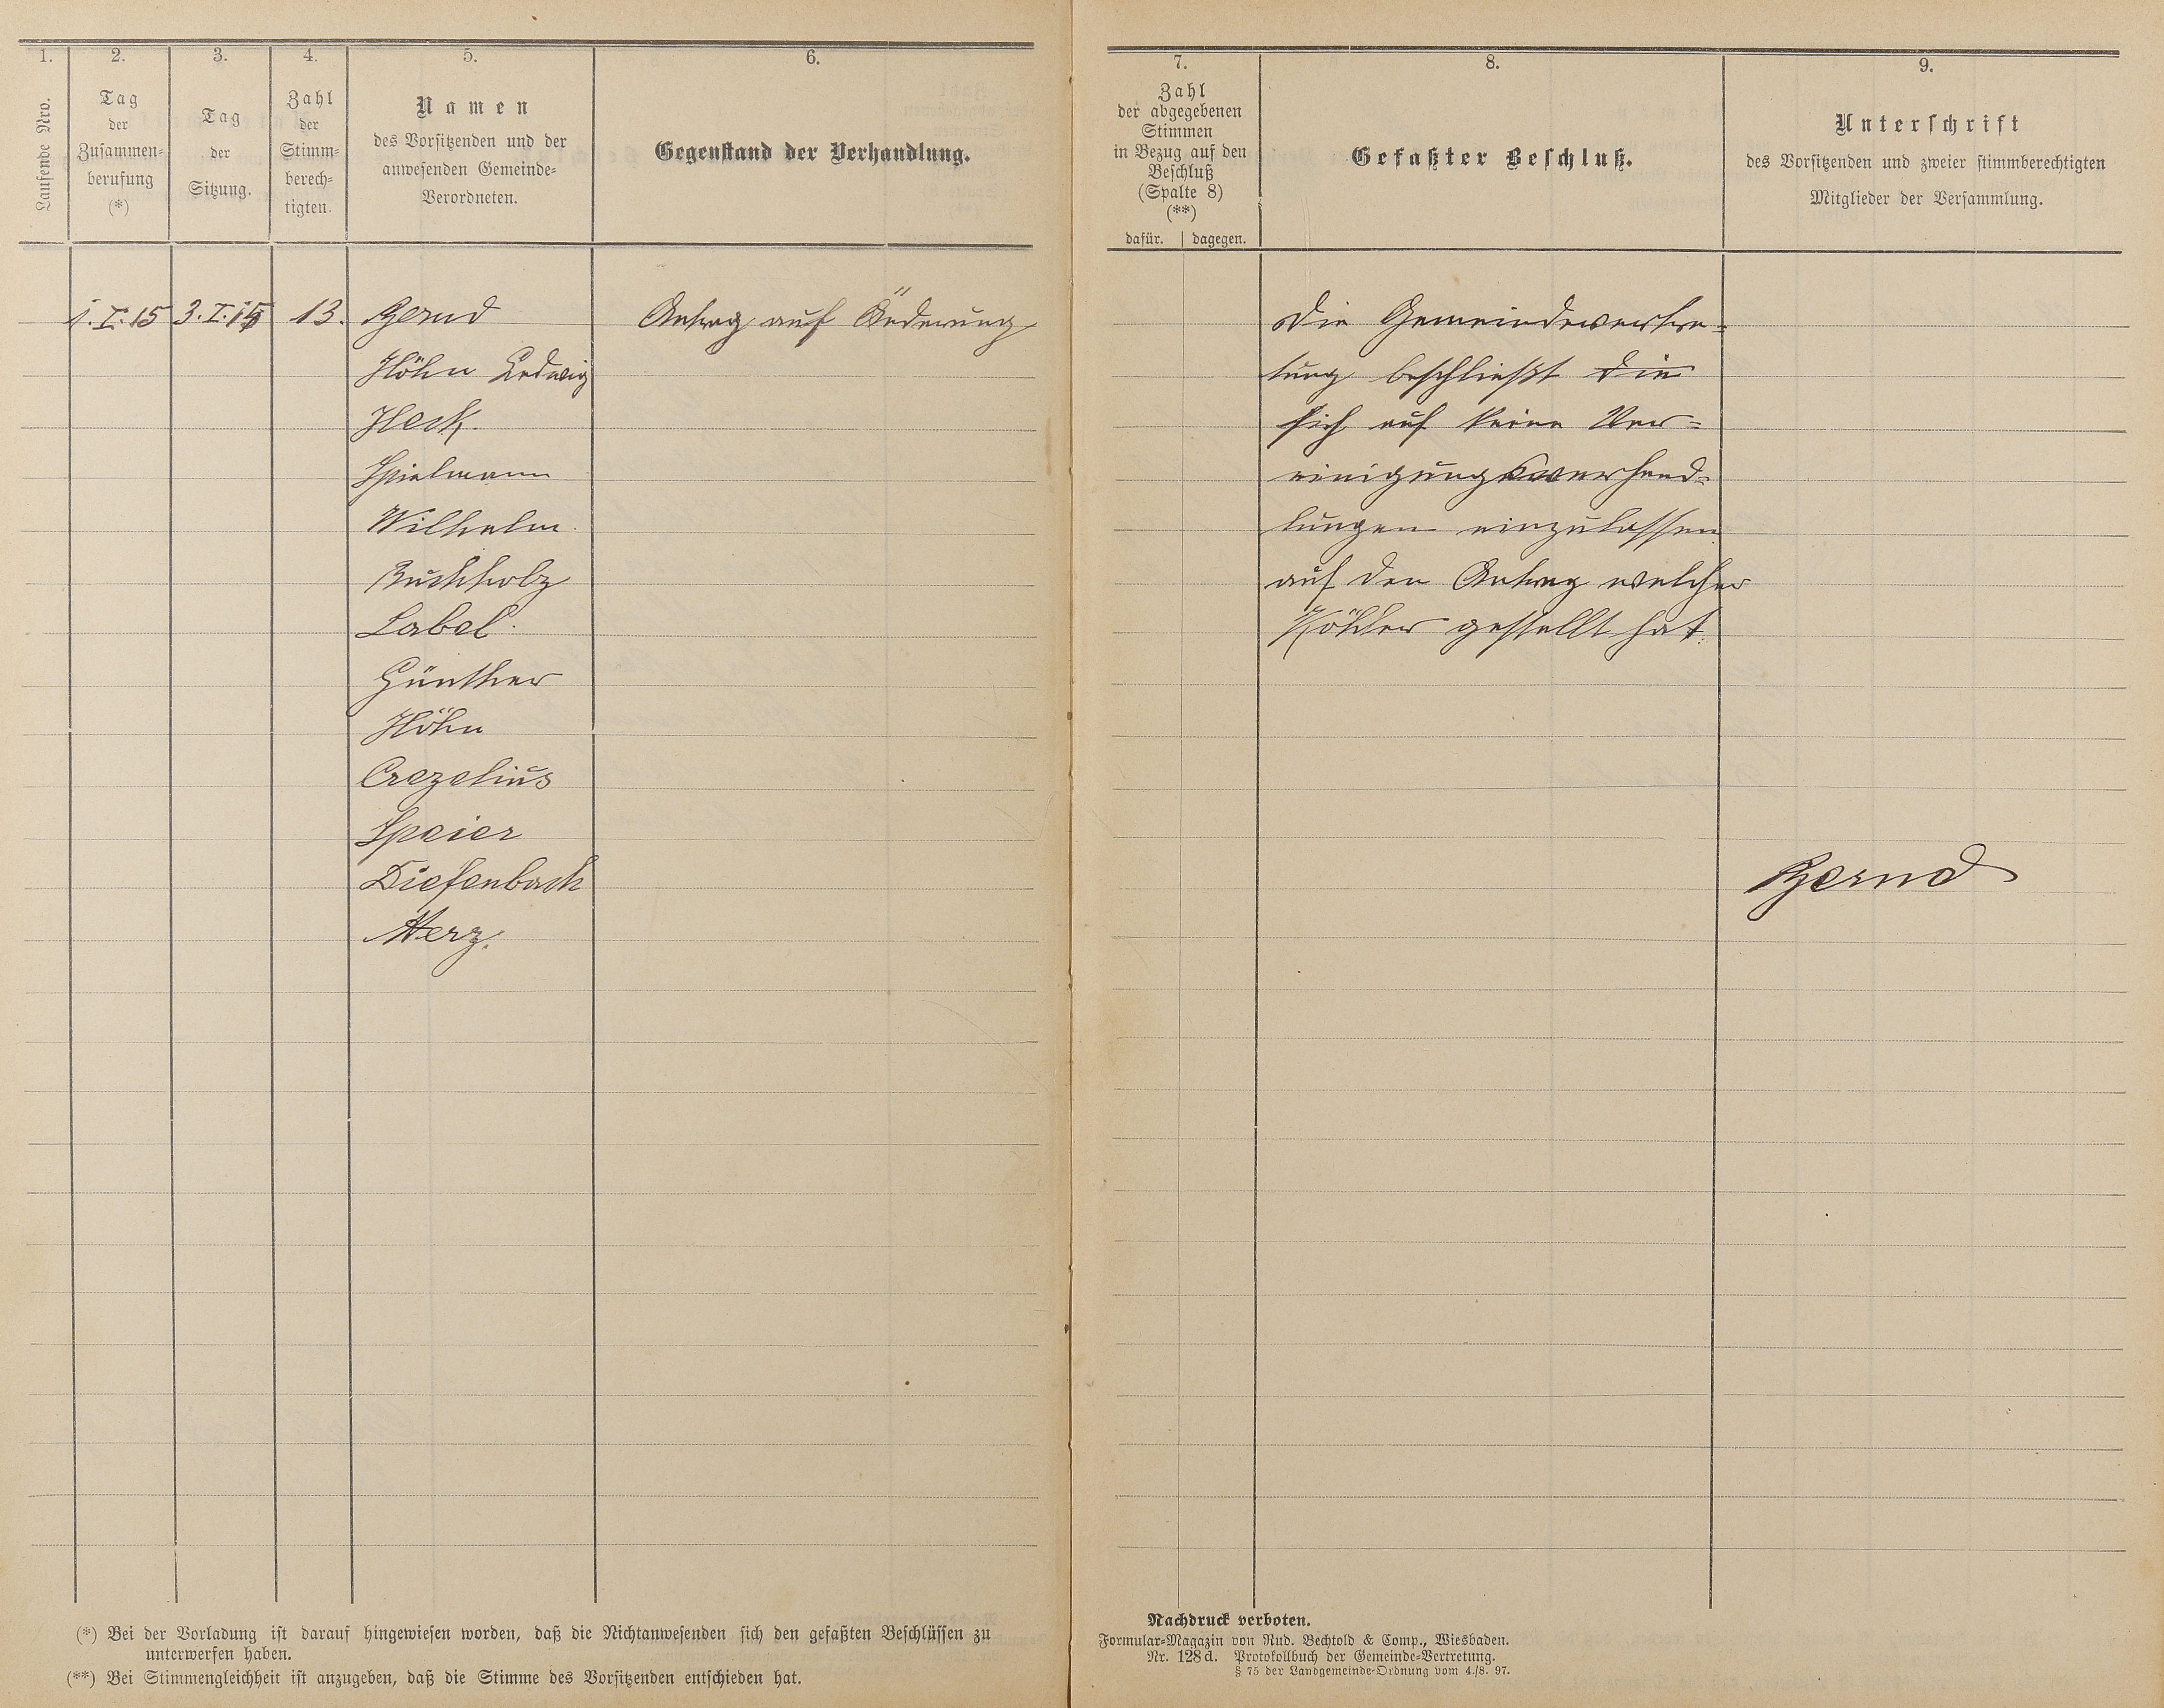 1.
2.
3.
4.
5.
6.
Laufende Nro.
Tag
der
Zusammen-
berufung
(*)
Tag
der
Sitzung.
Zahl
der
Stimm-
berech-
tigten.
Namen
des Vorsitzenden und der
anwesenden Gemeinde-
Verordneten.
Gegenstand der Verhandlung.
1.I.15
3.I.15
13.
Bernd
Antrag auf Änderung
Höhn Ludwig
Heck.
Spielmann
Wilhelm.
Buchholz
Label.
Günther
Höhn
Crezelius
Speier
Diefenbach
Herz.
(*) Bei der Vorladung ist darauf hingewiesen worden, daß die Nichtanwesenden sich den gefaßten Beschlüssen zu
unterwerfen haben.
(**) Bei Stimmengleichheit ist anzugeben, daß die Stimme des Vorsitzenden entschieden hat.
7.
8.
9.
Zahl
der abgegebenen
Stimmen
in Bezug auf den
Beschluß
(Spalte 8)
(**)
dafür. | dagegen.
Gefaßter Beschluß.
Unterschrift
des Vorsitzenden und zweier stimmberechtigten
Mitglieder der Versammlung.
Die Gemeindevertre-
tung beschließt die
sich auf keine Ver-
einigungsverhand-
lungen einzulassen
auf den Antrag welcher
Köhler gestellt hat.
Bernd
Nachdruck verboten.
Formular-Magazin von Rud. Bechtold & Comp., Wiesbaden.
Nr. 128 d. Protokollbuch der Gemeinde-Vertretung.
§ 75 der Landgemeinde-Ordnung vom 4./8. 97.